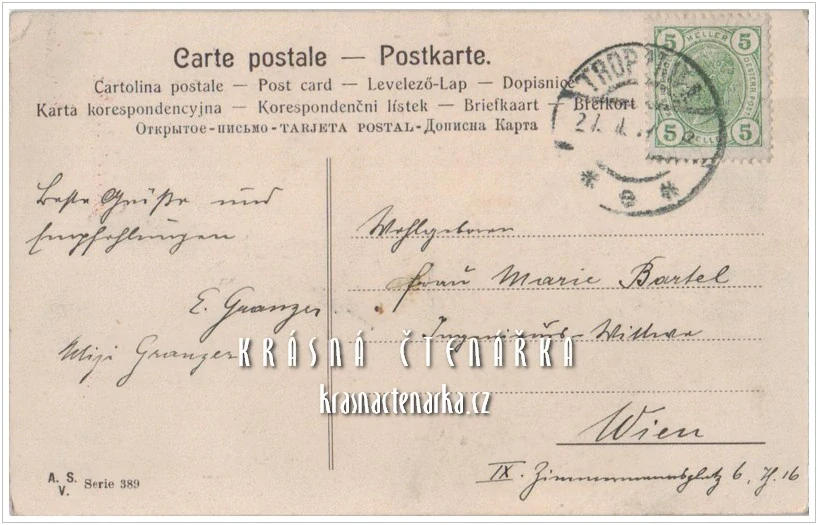 Carte postale — Postkarte.
Cartolina postale — Post card — Levelező-Lap — Dopisnice
Karta korespondencyjna — Korespondenční lístek — Briefkaart — Brefkort
Открытое-письмо-TARJETA POSTAL-Дописна Карта
5 HELLER 5
5 HELLER 5
TROPPAU
Beste Grüße und
Empfehlungen
E. Granzer
Mizi Granzer
Wohlgeboren
Frau Marie Bartel
Ingenieurs-Wittwe
Wien
IX. Zimmermannsplatz 6, H. 16
KRÁSNÁ ČTENÁŘKA
krasnactenarka.cz
A. S.
V.
Serie 389